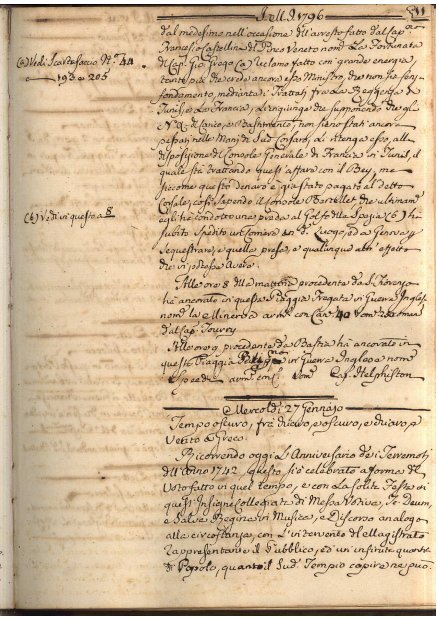 1796
11
(a) Vedi Scartafaccio N.° 44.
193 a 205
dal medesimo nell'occasione dell'arresto fatto dal Cap.no
Francesco Castellini del Porco Veneto nom.o La Fortunata
di Cap. Gio (a) reclamo fatto con grande energia,
che crede ancora esso Ministro, che non sia senza
fondamento, mediante i Trattati fra La Reggenza di
Tunisi e La Francia, e che supponendo che gli
e Bastimento non sieno stati ancora
nelle Mani di Sud.o Corsaro, Lo ritenga esso, alla
disposizione del Console Generale di Francia in Tunisi, il
quale sta trattando quest'affare con il Bey, ma
siccome questo denaro è già stato pagato al detto
Corsale, così sapendo il Console che ultimam.e
egli ha condotto una preda al Golfo della Spezia (b) ha
subito spedito in d.o Luogo, ed a Genova p.
sequestrare, e quella presa, e qualunque altr'effetto
che vi potesse avere.
(b) Vedi in questo a 8
Alle ore 8 della mattina procedente da S. Fiorenzo
ha ancorato in questa Spiaggia Fregata in Guerra Inglese
nom.a La Minerva arm. con Can. 40 Com.
dal Cap. Towry
Alle ore 9 procedente da Bastia ha ancorato in
questa Spiaggia in Guerra Inglese nom.
Speedy arm.
Mercoldì 27 Gennajo
Tempo oscuro, fra chiaro, e oscuro, e chiaro, e
Vento a Greco.
Ricorrendo oggi L'Anniversario de i Terremoti
dell'Anno 1742 questo si è celebrato a forma del
Voto fatto in quel tempo, e con La solita Festa in
quest'Insigne Collegiata di Messa Votiva, Te Deum,
e Salve Regina in Musica, e Discorso analogo
alla circostanza, con L'intervento del Magistrato
rappresentante il Pubblico, ed un'infinita quantità
di Popolo, quanto il Sud.o Tempio capire ne può.